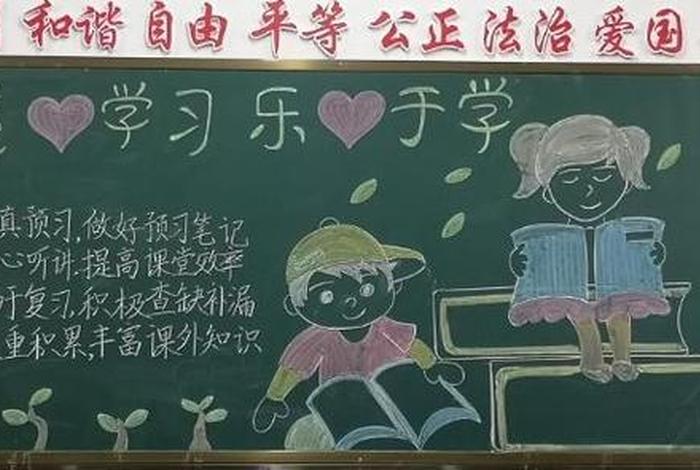 和谐 自由 平等 公正 法治 爱国
学习 乐于学
真预习,做好预习笔记
心听讲.提高课堂效率
复习,积极查缺补漏
重积累,丰富课外知识